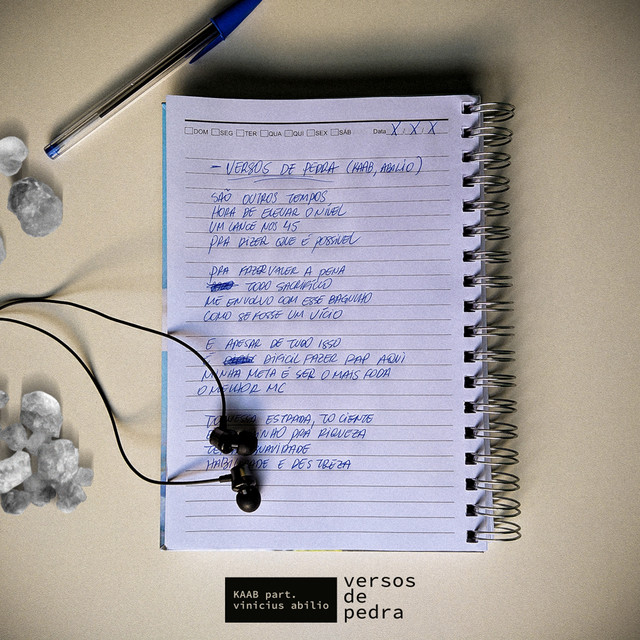 DOM SEG TER QUA QUI SEX SÁB Data X / X / X
- VERSOS DE PEDRA (KAAB, ABILIO)
SÃO OUTROS TEMPOS
HORA DE ELEVAR O NÍVEL
UM LANCE NOS 45
PRA DIZER QUE É POSSÍVEL
PRA FAZER VALER A PENA
TODO SACRIFÍCIO
ME ENVOLVO COM ESSE BAGULHO
COMO SE FOSSE UM VÍCIO
E APESAR DE TUDO ISSO
DIFÍCIL FAZER RAP AQUI
MINHA META É SER O MAIS FODA
O MELHOR MC
ESTRADA, TÔ CIENTE
PRA RIQUEZA
SUAVIDADE
E DESTREZA
KAAB part.
vinicius abilio
versos
de
pedra